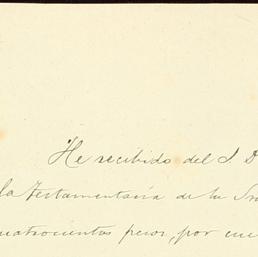 He recibido del S. D
la Testamentaría de la Sra
cuatrocientos pesos, por cue